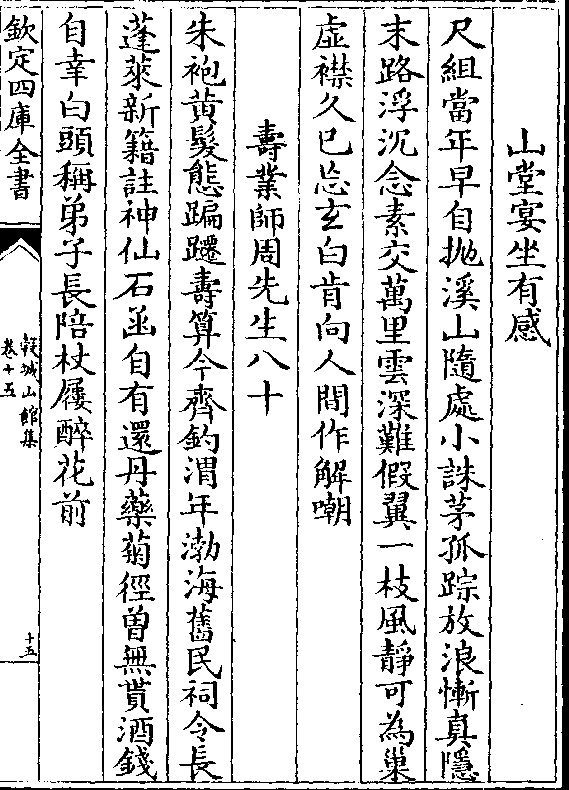 山堂宴坐有感
尺組當年早自抛溪山隨處小誅茅孤踪放浪慚真隱
末路浮沉念素交萬里雲深難假翼一枝風靜可為巢
虛襟久已忘玄白肯向人間作解嘲
壽業師周先生八十
朱袍黄髮態蹁躚壽算今齊釣渭年渤海舊民祠令長
蓬萊新籍註神仙石函自有還丹藥菊徑曽無貰酒錢
自幸白頭稱弟子長陪杖屨醉花前
欽定四庫全書
榖城山館集
卷十五
十五